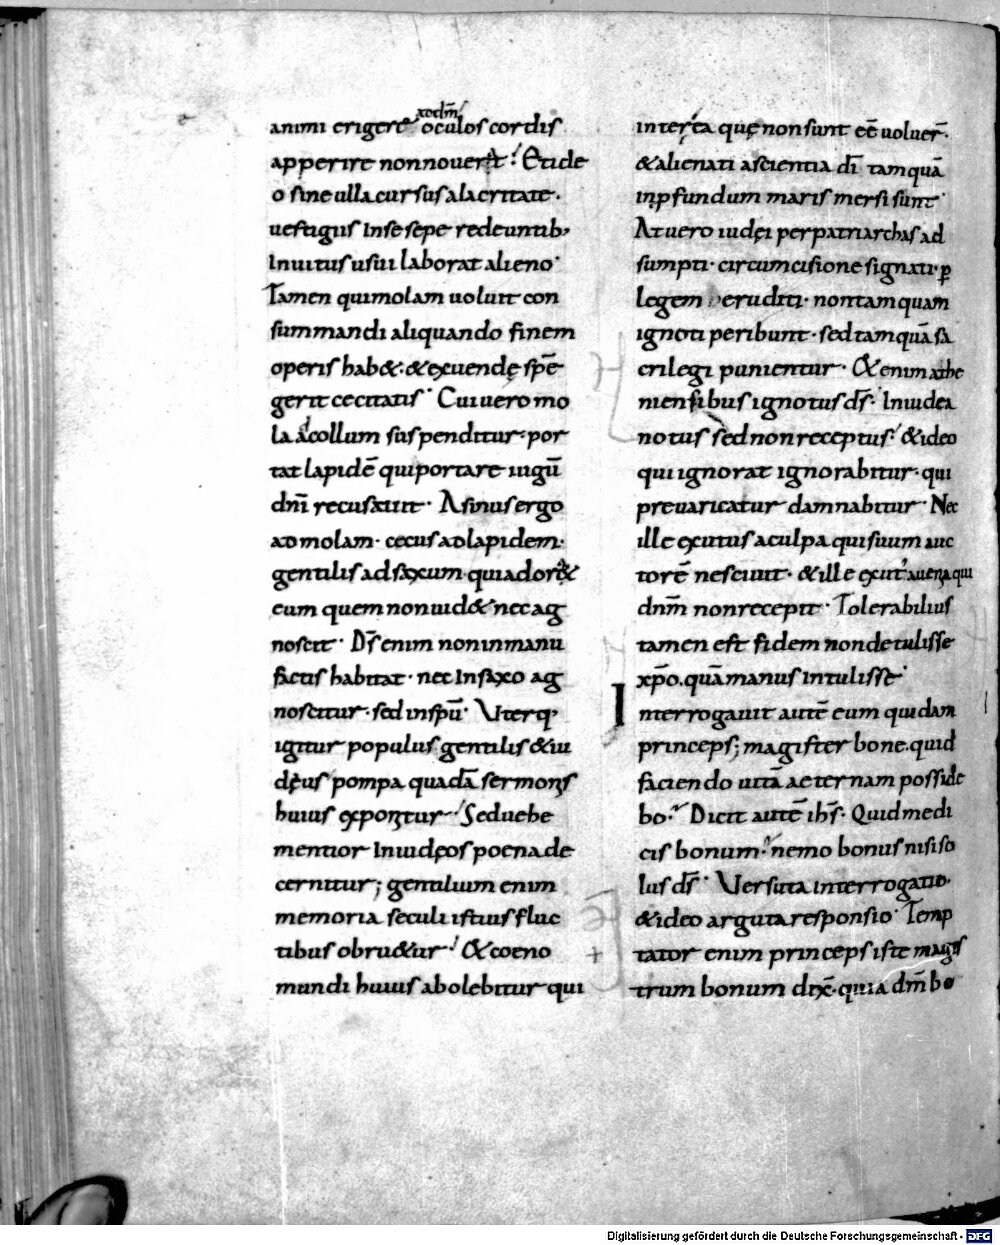 animi erigere ocułos cordis
apperire non nouerat. Et ide
o sine ulla cursus alacritate.
uestigiis in se sepe redeuntib;
Inuitus usui laborat alieno.
Tamen qui molam uoluit con
summandi aliquando finem
operis hab&. & exuendę spē
gerit cecitatis. Cui uero mo
la a collum suspenditur. por
tat lapidē qui portare iugū
dn̄i recusauit. Asinus ergo
ad molam. cecus ad lapidem.
gentilis ad saxum. quia
eum quem non uid& nec ag
noscit. Ds̄ enim non in manu
factis habitat. nec In saxo ag
noscitur. sed in sp̄u. Uterq;
igitur populus gentilis & iu
dęus pompa quadā sermonis
huius exponitur. Sed uehe
mentior In iudęos poena de
cernitur; gentilium enim
memoria seculi istius fluc
tibus obru&ur. & coeno
mundi huius abolebitur qui
inter ea quę non sunt eē uoluer̄.
& alienati a scientia dī tamquā
in p̱fundum maris mersi sunt.
At uero iudęi per patriarchas ad
sumpti. circumcisione signati. ꝑ
legem eruditi. non tamquam
ignoti peribunt. sed tamquā sa
crilegi punientur. & enim athe
niensibus ignotus ds̄. In iudea
notus sed non receptus. & ideo
qui ignorat ignorabitur. qui
preuaricatur damnabitur. Nec
ille exutus a culpa qui suum auc
torē nesciuit. & ille qui
dnm̄ non recepit. Tolerabilius
tamen est fidem non detulisse
xp̄o. quā manus intulisse.
Interrogauit autē eum quidam
princeps; magister bone. quid
faciendo uitā aeternam posside
bo. Dicit autē ihs̄. Quid me di
cis bonum. nemo bonus nisi so
lus ds̄. Uersuta interrogatio.
& ideo arguta responsio. Temp
tator enim princeps iste magis
trum bonum dix̄. quia dn̄m bo
Digitalisierung gefördert durch die Deutsche Forschungsgemeinschaft - DFG